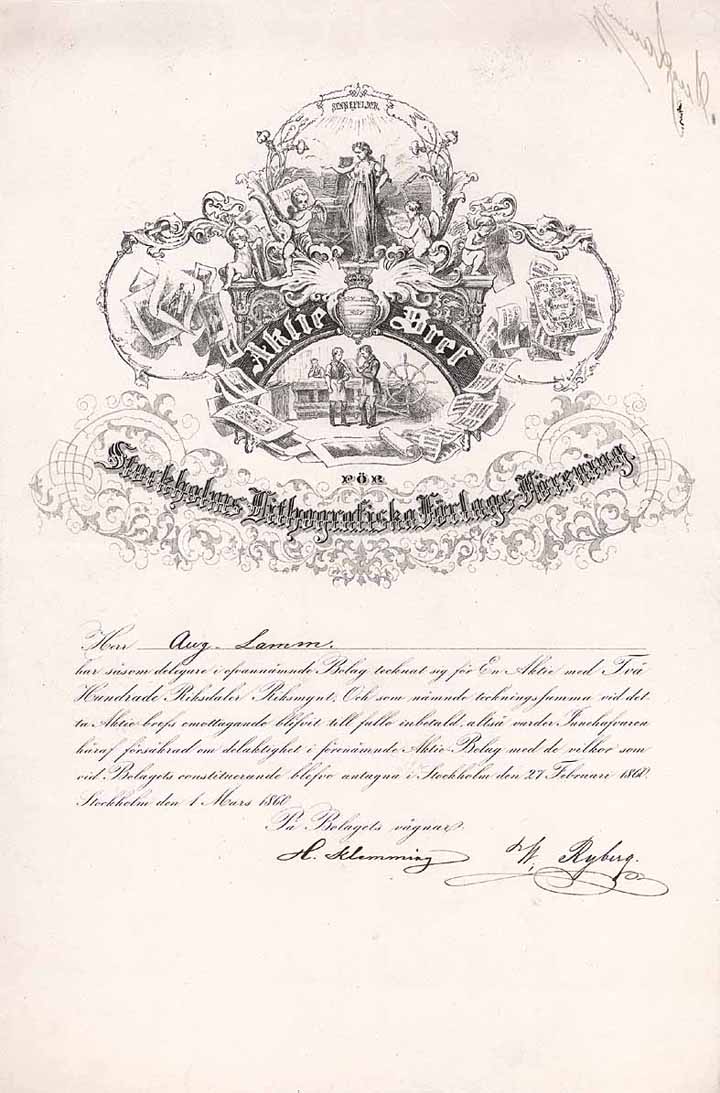 SENNEFELDER
Aktie Bref
FÖR
Stockholms Lithografiska Förlags-Förening.
Herr Aug. Lamm.
har såsom delegare i ofvannämnde Bolag tecknat sig för En Aktie med Två
Hundrade Riksdaler Riksmynt. Och som nämnde teckningssumma vid det-
ta Aktie-brefs emottagande blifvit till fullo inbetald, altså varder Innehafvaren
häraf försäkrad om delaktighet i förenämnde Aktie-Bolag med de vilkor som
vid Bolagets constituerande blefvo antagna i Stockholm den 27 Februari 1860.
Stockholm den 1 Mars 1860
På Bolagets vägnar.
H. Klemming W. Ryberg.